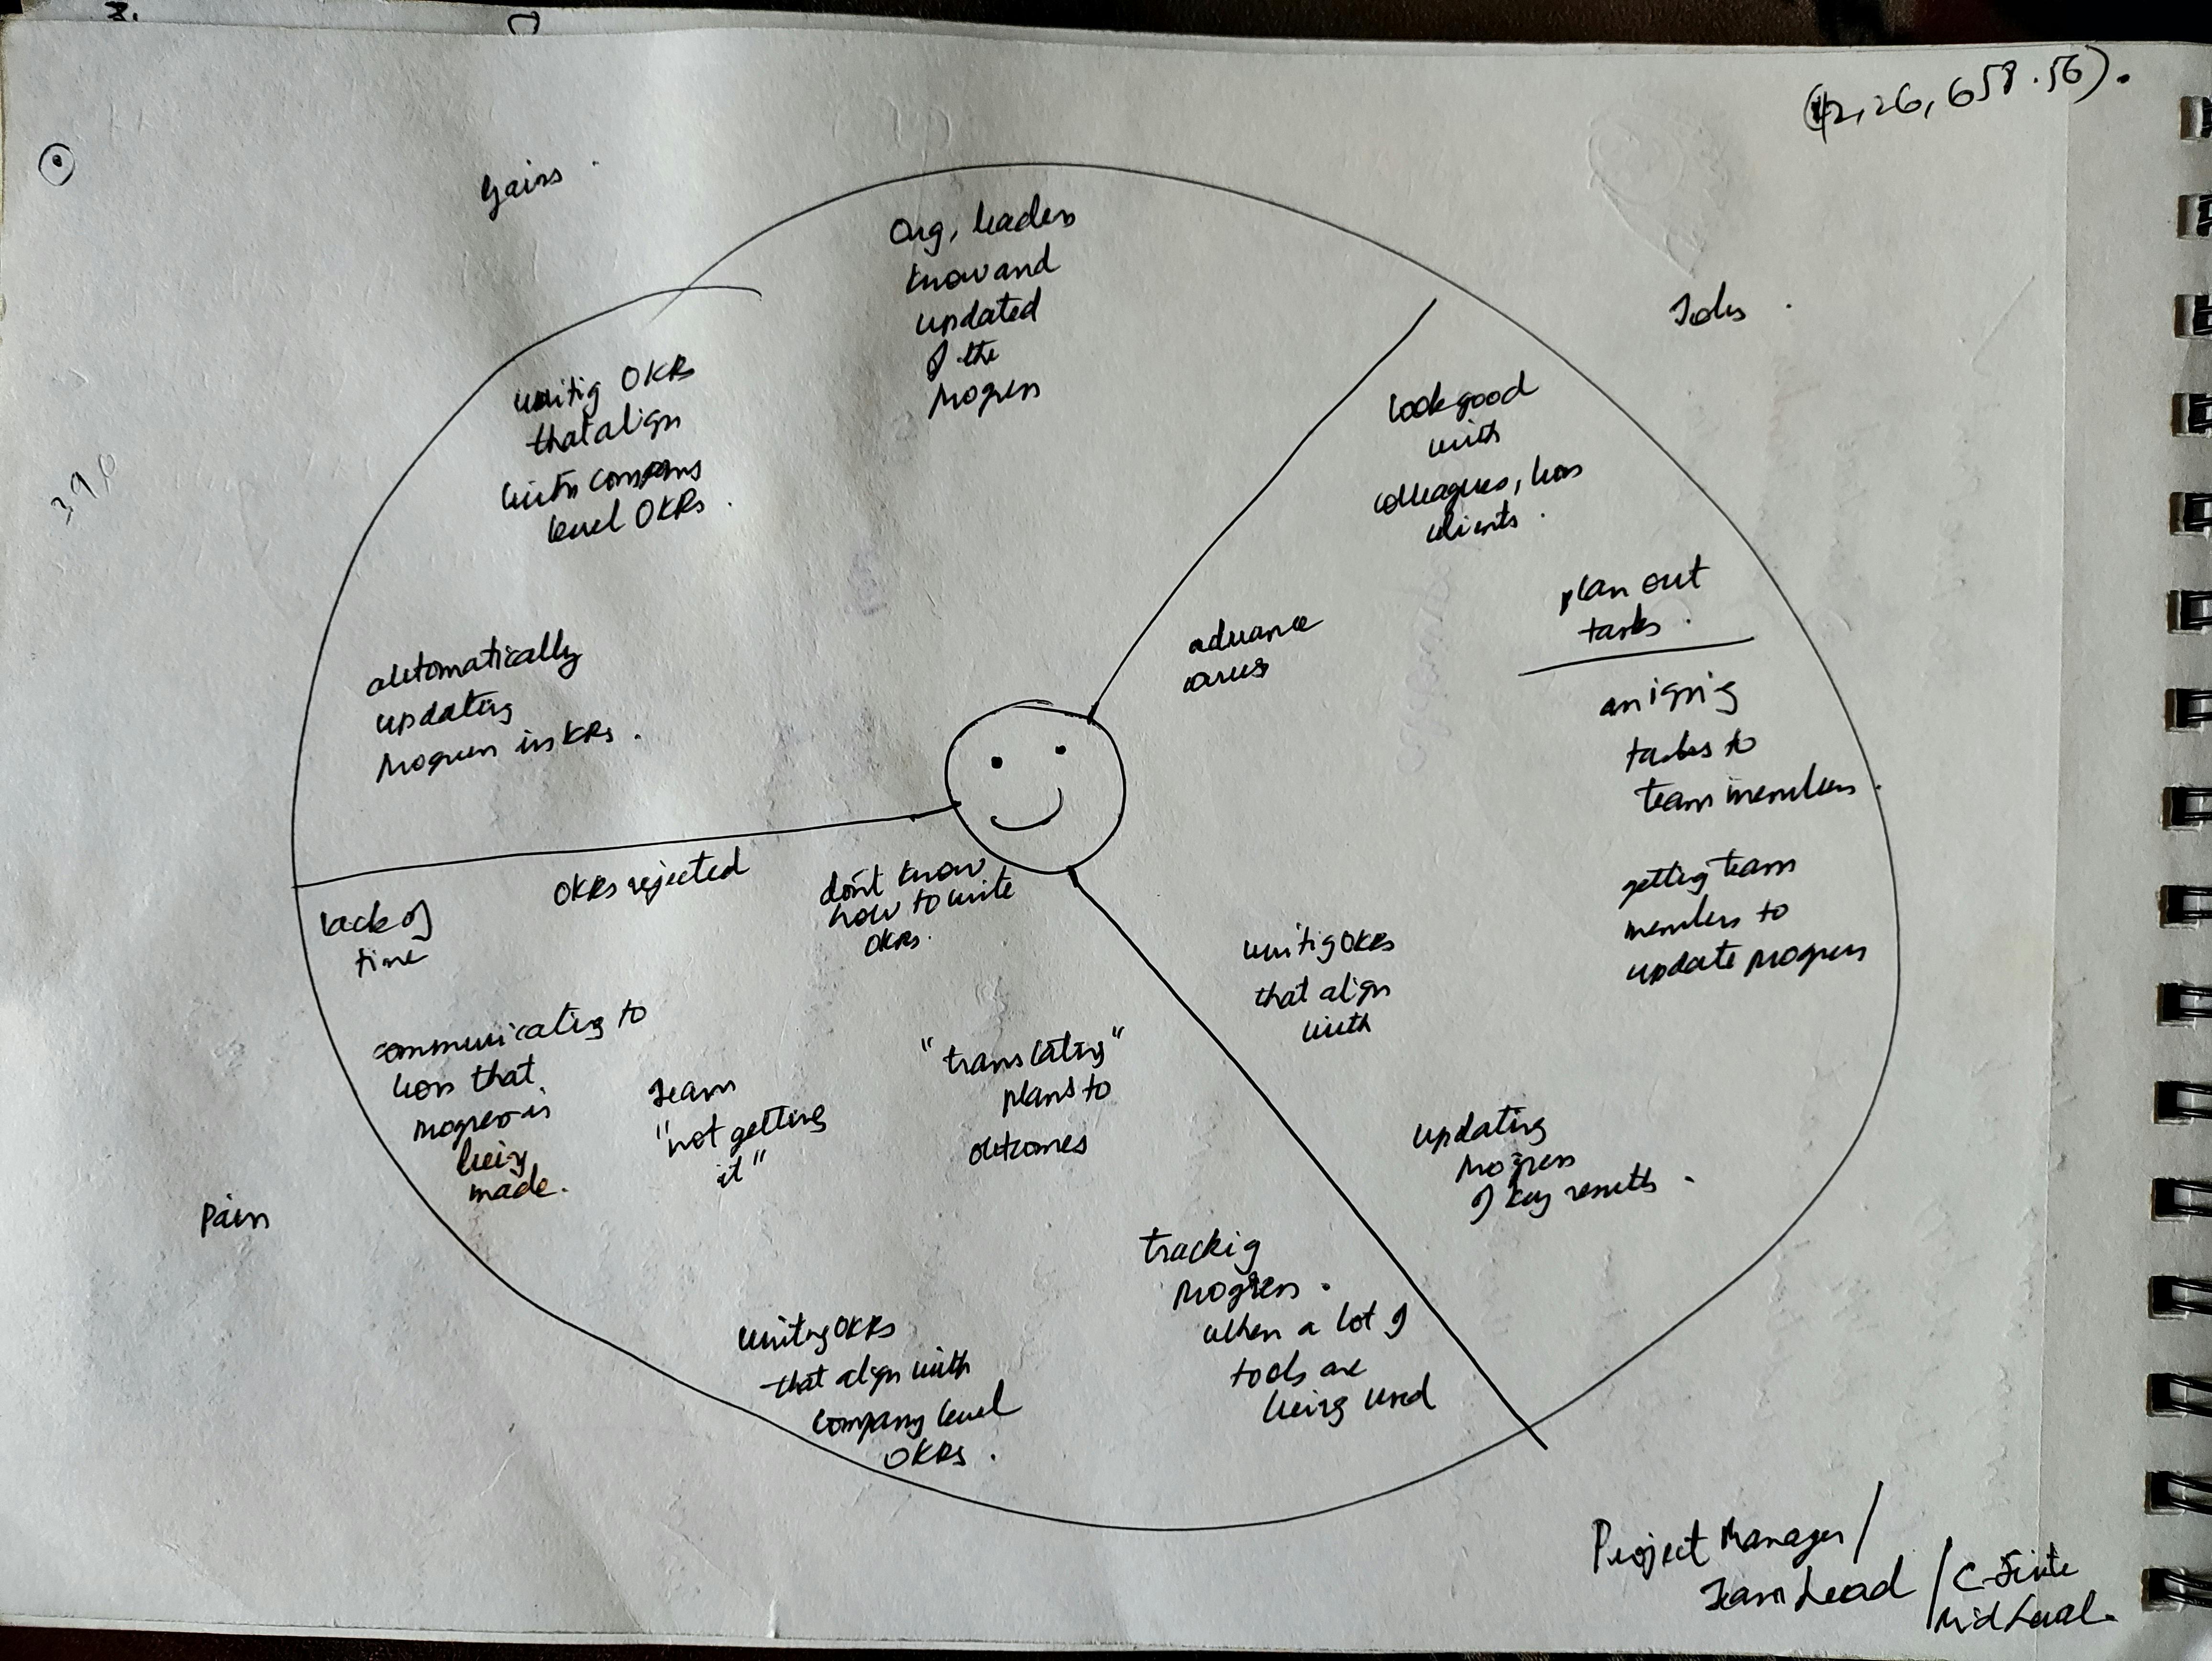 Gains.
Org, leaders
know and
updated
of the
progress
writing OKRs
that align
with company
level OKRs.
automatically
updating
progress in KRs.
Jobs.
look good
with
colleagues, boss
clients.
plan out
tasks.
advance
assigning
tasks to
team members.
getting team
members to
update progress
writing OKRs
that align
with
updating
progress
of key results.
Pain
OKRs rejected
don't know
how to write
OKRs.
lack of
time
communicating to
boss that
progress is
being
made.
Team
"not getting
it"
"translating"
plans to
outcomes
tracking
progress.
when a lot of
tools are
being used
writing OKRs
that align with
company level
OKRs.
Project Manager /
Team Lead / C-Suite
/ Mid Level.